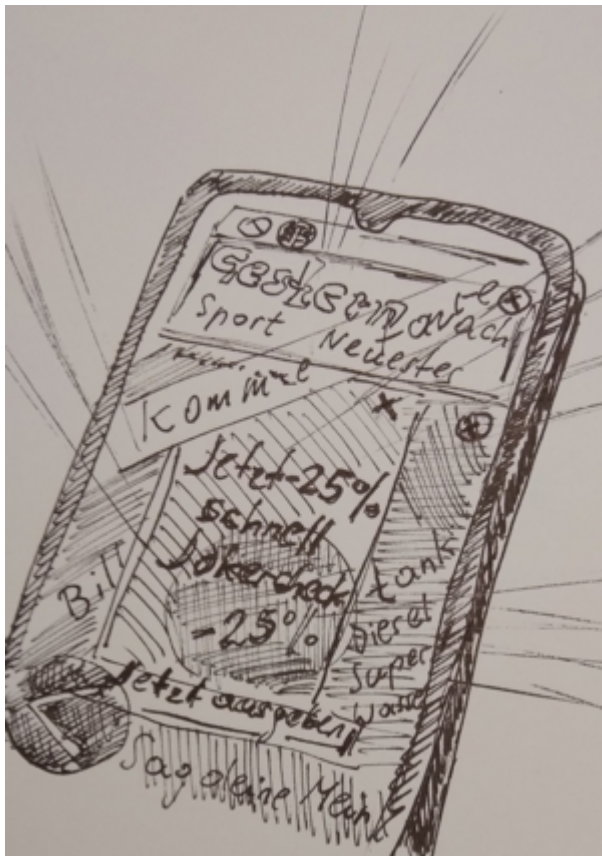 Gestern
Sport Neuestes
komm
Jetzt-25%
schnell
-25%
Bill
tank
Diesel
Super
Jetzt ausgeben
Sag deine Mein